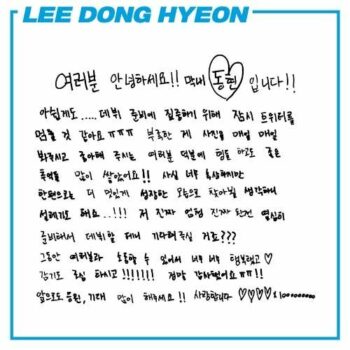 LEE DONG HYEON
여러분 안녕하세요!! 막내 동현 입니다!!
아쉽게도..... 데뷔 준비에 집중하기 위해 잠시 트위터를
멈출 것 같아요 ㅠㅠㅠ 부족한 제 사진을 매일 매일
봐주시고 좋아해 주시는 여러분 덕분에 힘도 나고 좋은
추억을 많이 쌓았어요!! 사실 너무 속상하지만
한편으로는 더 멋있게 성장한 모습으로 찾아뵐 생각해서
설레기도 해요..!!! 저 진짜 엄청 진짜 완전 열심히
준비해서 데뷔할 테니 기다려주실 거죠???
그동안 여러분과 소통할 수 있어서 너무 너무 행복했고 ♡
감기도 조심 하시고!!!!!!! 정말 감사했어요 ㅠㅠ!!
앞으로도 동현, 기대 많이 해주세요!! 사랑합니다 ♡♡♡♡ x100000000